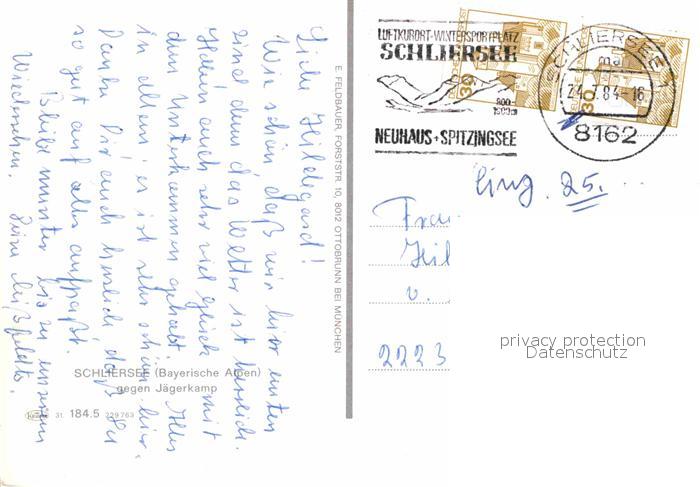 Liebe Hildegard!
Wie schön, daß wir hier unten
sind denn das Wetter ist herrlich.
Haben auch sehr viel Glück mit
dem Unterkommen gehabt. Alles
in allem es ist sehr schön hier
Danke Dir auch herzlich daß Du
so gut auf alles aufpaßt.
Bleibe munter bis zu unserem
Wiedersehen.
SCHLIERSEE (Bayerische Alpen)
gegen Jägerkamp
31. 184.5 229763
E. FELDBAUER, FORSTSTR. 10, 8012 OTTOBRUNN BEI MÜNCHEN
LUFTKURORT-WINTERSPORTPLATZ
SCHLIERSEE
800-
NEUHAUS + SPITZINGSEE
SCHLIERSEE 1
24.7.84-16
8162
30
30
eing. 25.
Frau
Hil
v.
2223
privacy protection
Datenschutz